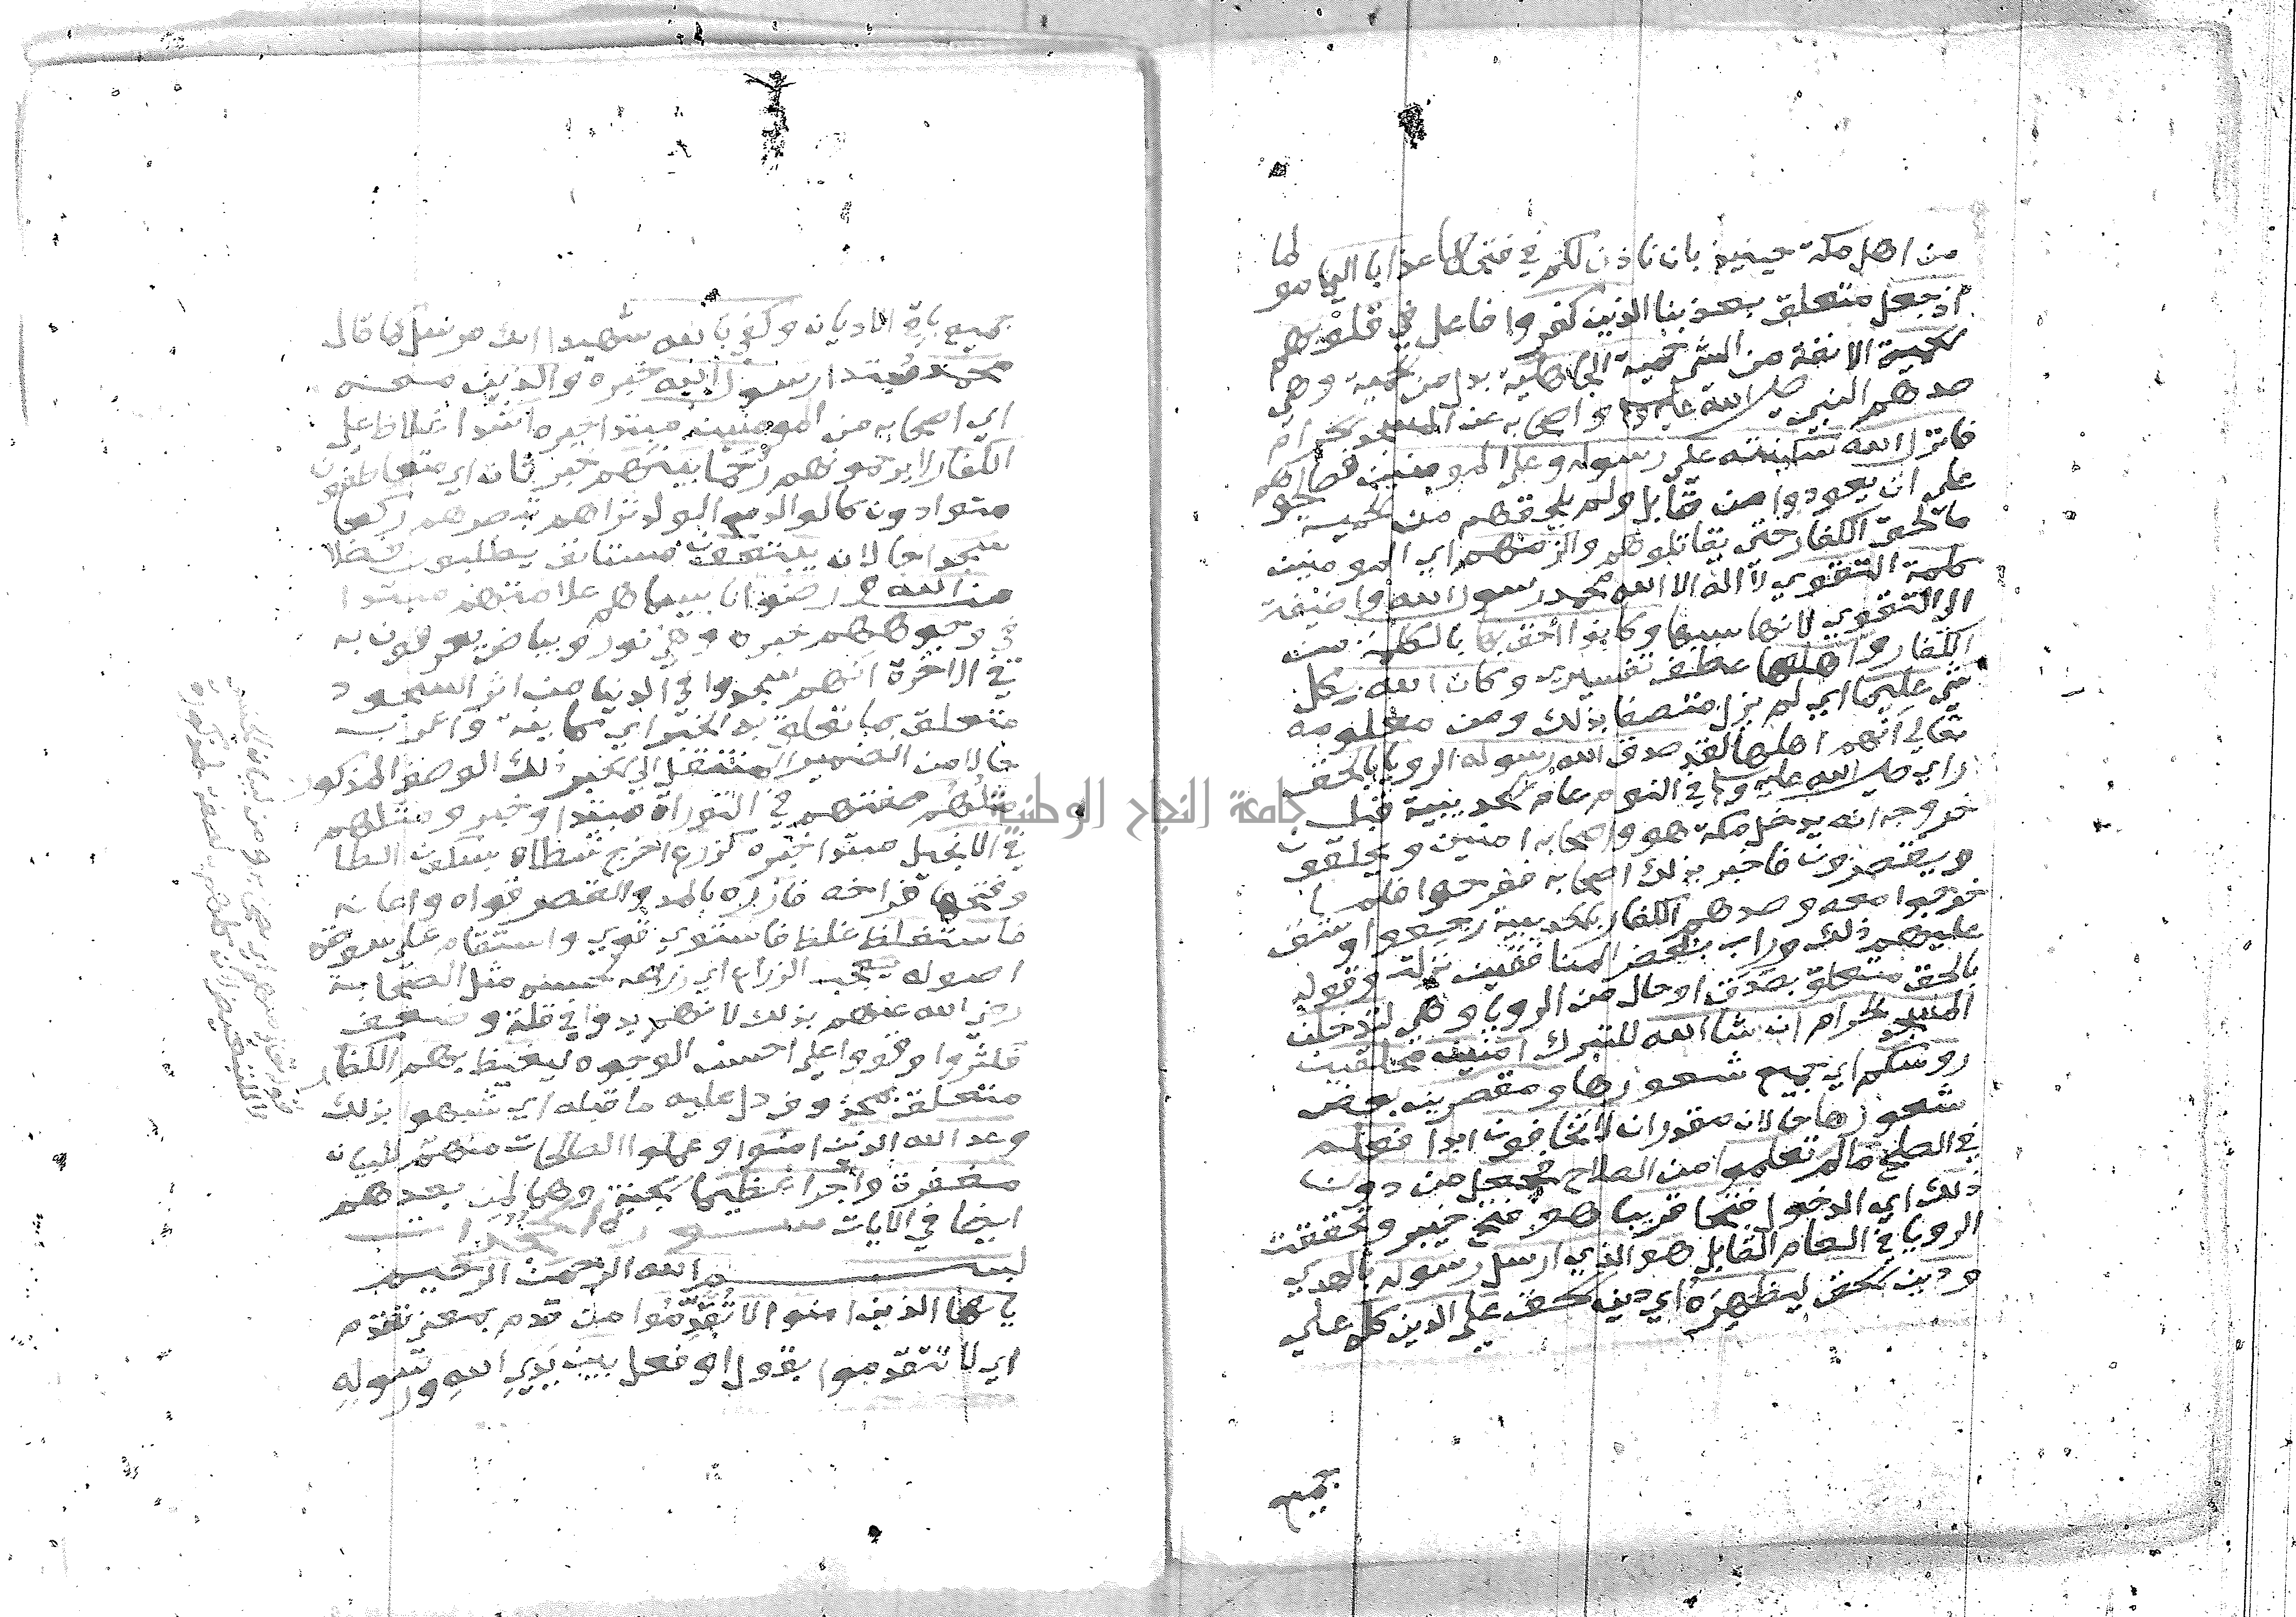 من اهل مكة حينيذ بان ناذن لكم في فتحها عذابا اليما مولما
اذ جعل متعلق بعذبنا الذين كفروا فاعل في قلوبهم
الحمية الانفة من الشي حمية الجاهلية بدل من الحمية وهي
صدهم النبي صلي الله عليه وسلم واصحابه عن المسجد الحرام
فانزل الله سكينته علي رسوله وعلي المومنين فصالحوهم
علي ان يعودوا من قابل ولم يلحقهم من الحمية
ما لحق الكفار حتي يقاتلوهم والزمهم اي المومنين
كلمة التقوي لا اله الا الله محمد رسول الله واضيفت
الي التقوي لانها سببها وكانوا احق بها بالكلمة من
الكفار واهلها عطف تفسيري وكان الله بكل
شي عليما اي لم يزل متصفا بذلك ومن معلومه
تعالي انهم اهلها لقد صدق الله رسوله الرويا بالحق
راي صلي الله عليه وسلم في النوم عام الحديبية قبل
خروجه انه يدخل مكة هو واصحابه امنين ويحلقون
ويقصرون فاخبر بذلك اصحابه ففرحوا فلما
خرجوا معه وصدهم الكفار بالحديبية رجعوا وشق
عليهم ذلك وراب بعض المنافقين نزلت وقوله
بالحق متعلق بصدق او حال من الرويا وهي لتدخلن
المسجد الحرام ان شا الله للتبرك امنين محلقين
روسكم اي جميع شعورها ومقصرين بعض
شعورها حالان مقدران لا تخافون ابدا فعلم
في الصلح ما لم تعلموا من الصلاح فجعل من دون
ذلك اي الدخول فتحا قريبا هو فتح خيبر وتحققت
الرويا في العام القابل هو الذي ارسل رسوله بالهدي
ودين الحق ليظهره اي دين الحق علي الدين كله علي
جميع
جميع باقي الاديان وكفي بالله شهيدا انك مرسل كما قال
محمد مبتدا رسول الله خبره والذين معه
اي اصحابه من المومنين مبتدا خبره اشدا غلاظ علي
الكفار لا يرحمونهم رحما بينهم خبر ثان اي متعاطفون
متوادون كالوالد مع الولد تراهم تبصرهم ركعا
سجدا حالان يبتغون مستانف يطلبون فضلا
من الله ورضوانا سيماهم علامتهم مبتدا
في وجوههم خبره وهي نور وبياض يعرفون به
في الاخرة انهم سجدوا في الدنيا من اثر السجود
متعلق بما تعلق به الخبر اي كاينة واعرب
حالا من الضمير المنتقل الي الخبر ذلك الوصف المذكور
مثلهم صفتهم في التوراة مبتدا وخبر ومثلهم
في الانجيل مبتدا خبره كزرع اخرج شطاه بسكون الطا
وفتحها فراخه فازره بالمد والقصر قواه واعانه
فاستغلظ غلظ فاستوي قوي واستقام علي سوقه
اصوله يعجب الزراع اي زراعه لحسنه مثل الصحابة
رضي الله عنهم بذلك لانهم بدوا في قلة وضعف
فكثروا وقووا علي احسن الوجوه ليغيظ بهم الكفار
متعلق بمحذوف دل عليه ما قبله اي شبهوا بذلك
وعد الله الذين امنوا وعملوا الصالحات منهم لبيان
مغفرة واجرا عظيما الجنة وهما لمن بعدهم
ايضا في الايات سورة الحجرات
بسم الله الرحمن الرحيم
يايها الذين امنوا لا تقدموا من قدم بمعني تقدم
اي لا تتقدموا بقول او فعل بين يدي الله ورسوله
جامعة النجاح الوطنية